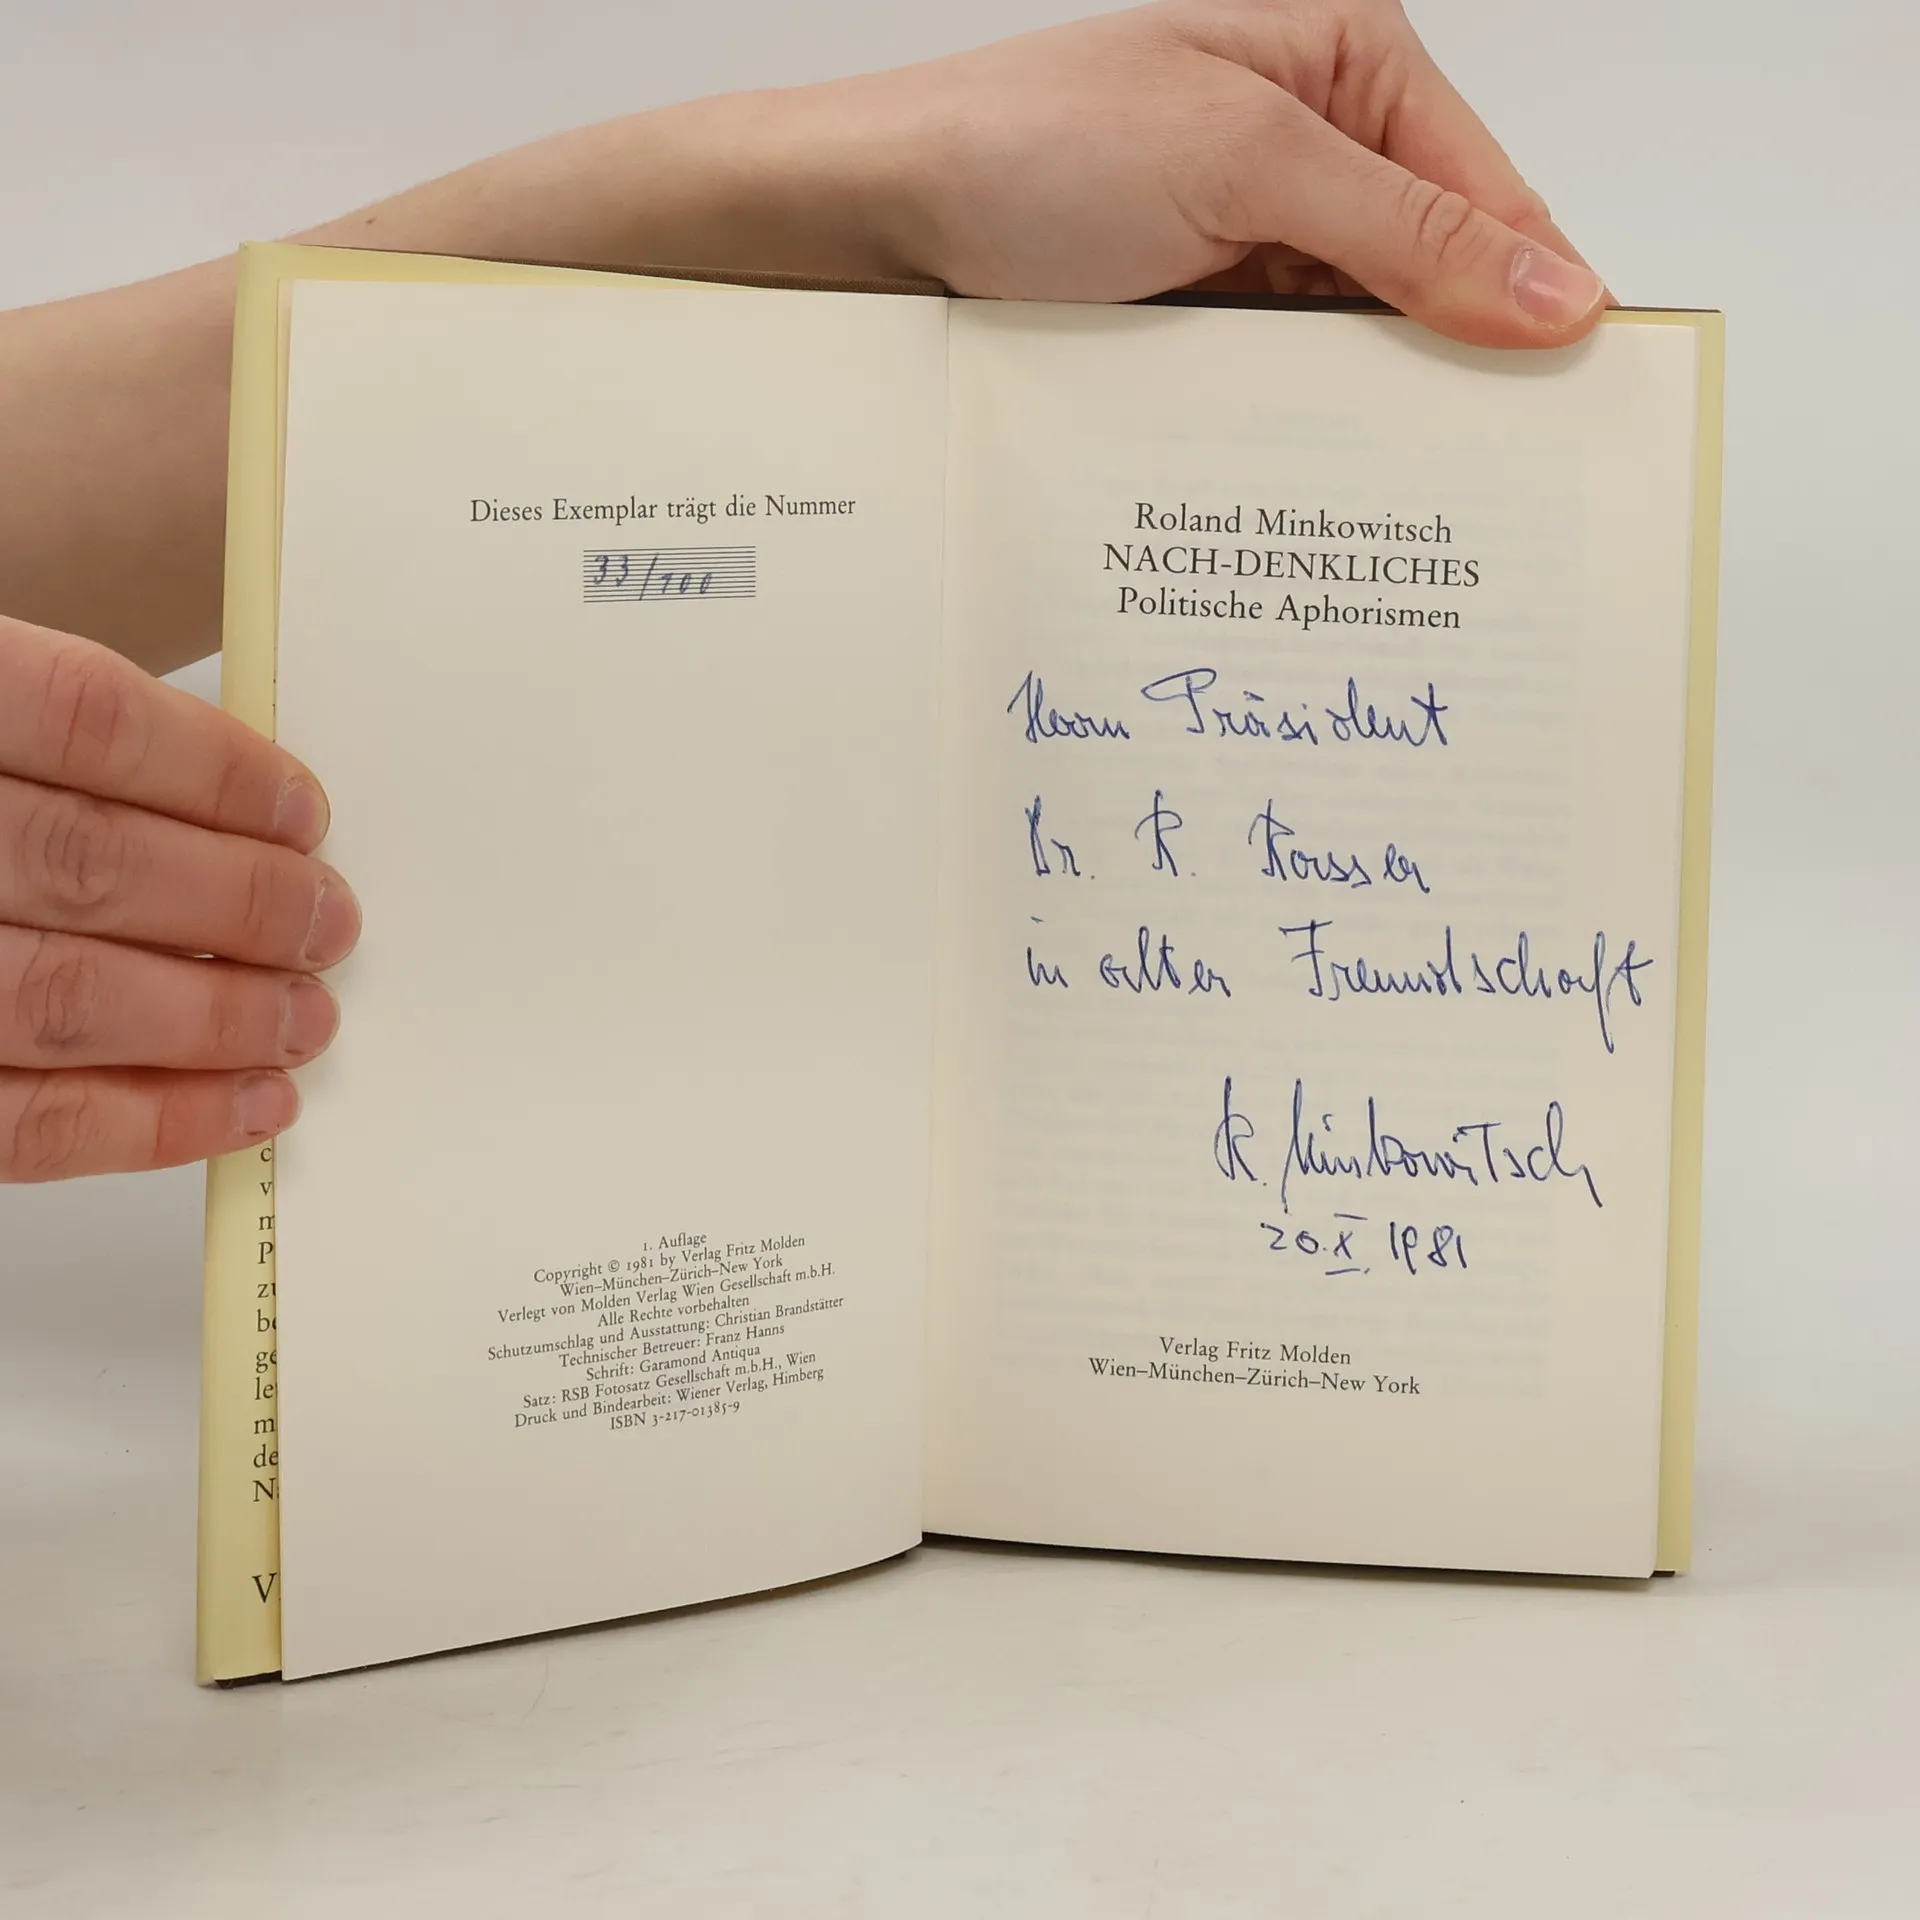 Dieses Exemplar trägt die Nummer
33/100
c
v
m
P
zu
be
ge
le
m
de
N
V
1. Auflage
Copyright © 1981 by Verlag Fritz Molden
Wien–München–Zürich–New York
Verlegt von Molden Verlag Wien Gesellschaft m.b.H.
Alle Rechte vorbehalten
Schutzumschlag und Ausstattung: Christian Brandstätter
Technischer Betreuer: Franz Hanns
Schrift: Garamond Antiqua
Satz: RSB Fotosatz Gesellschaft m.b.H., Wien
Druck und Bindearbeit: Wiener Verlag, Himberg
ISBN 3-217-01385-9
Roland Minkowitsch
NACH-DENKLICHES
Politische Aphorismen
Herrn Präsident
Dr. R.
in alter Freundschaft
R. Minkowitsch
20.X. 1981
Verlag Fritz Molden
Wien–München–Zürich–New York